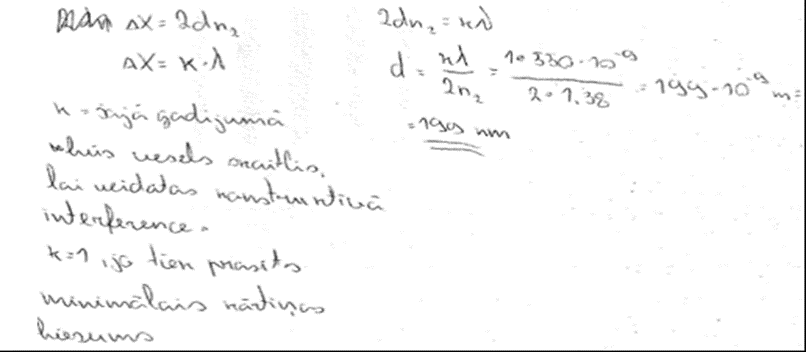 Δx = 2dn₂
Δx = k·λ
k = šajā gadījumā
vesels skaitlis,
lai veidotas konstruktīvā
interference.
k=1, ja tiek prasīts
minimālais kārtiņas
biezums
2dn₂ = kλ
d = kλ/2n₂ = 1·550·10⁻⁹/2·1,38 = 199·10⁻⁹ m =
= 199 nm